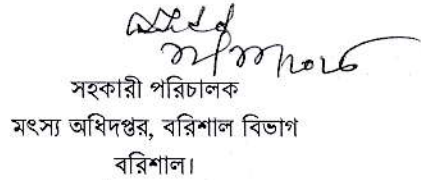 সহকারী পরিচালক
মৎস্য অধিদপ্তর, বরিশাল বিভাগ
বরিশাল।